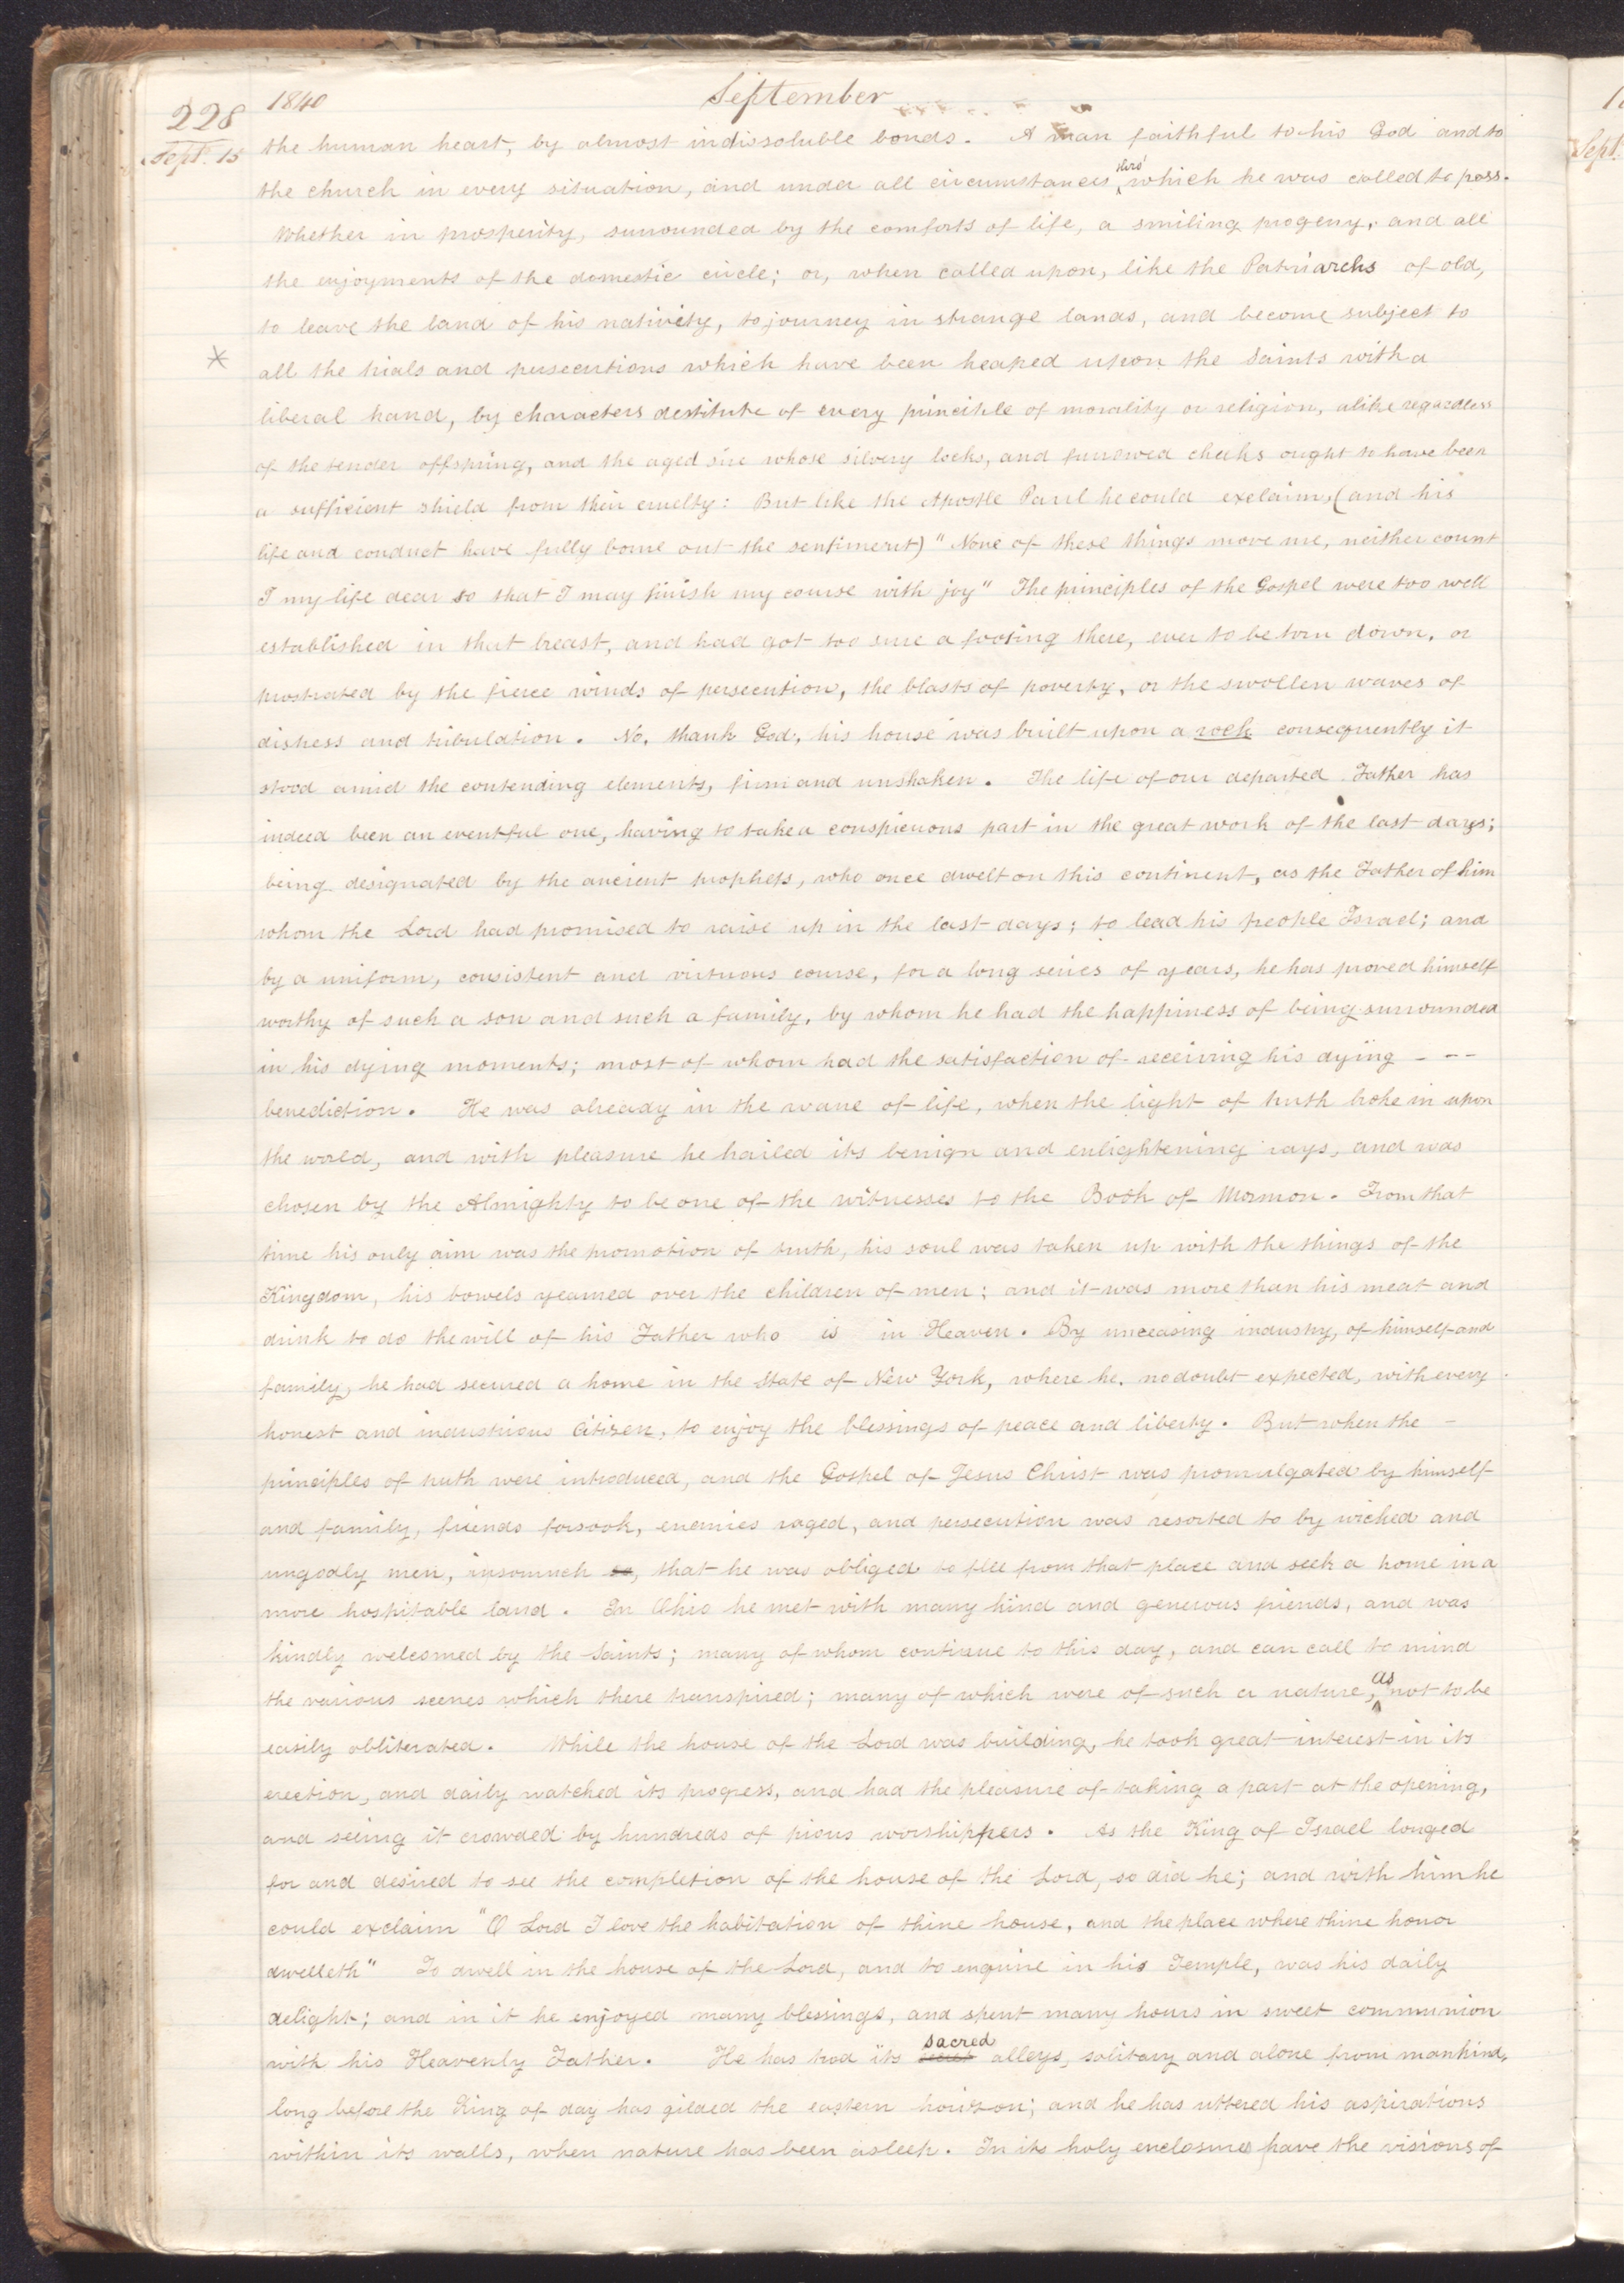 228
1840
September
Sept. 15
the human heart, by almost indissoluble bonds. A man faithful to his God and to
the church in every situation, and under all circumstances, thro' which he was called to pass.
Whether in prosperity, surrounded by the comforts of life, a smiling progeny, and all
the enjoyments of the domestic circle; or, when called upon, like the Patriarchs of old,
to leave the land of his nativity, to journey in strange lands, and become subject to
all the trials and persecutions which have been heaped upon the Saints with a
liberal hand, by characters destitute of every principle of morality or religion, alike regardless
of the tender offspring, and the aged sire whose silvery locks, and furrowed cheeks ought to have been
a sufficient shield from their cruelty: But like the Apostle Paul he could exclaim, (and his
life and conduct have fully borne out the sentiment) "None of these things move me, neither count
I my life dear so that I may finish my course with joy" The principles of the Gospel were too well
established in that breast, and had got too sure a footing there, ever to be torn down, or
prostrated by the fierce winds of persecution, the blasts of poverty, or the swollen waves of
distress and tribulation. No, thank God, his house was built upon a rock consequently it
stood amid the contending elements, firm and unshaken. The life of our departed Father has
indeed been an eventful one, having to take a conspicuous part in the great work of the last days;
being designated by the ancient prophets, who once dwelt on this continent, as the Father of him
whom the Lord had promised to raise up in the last days; to lead his people Israel; and
by a uniform, consistent and virtuous course, for a long series of years, he has proved himself
worthy of such a son and such a family, by whom he had the happiness of being surrounded
in his dying moments; most of whom had the satisfaction of receiving his dying - - -
benediction. He was already in the wane of life, when the light of truth broke in upon
the world, and with pleasure he hailed its benign and enlightening rays, and was
chosen by the Almighty to be one of the witnesses to the Book of Mormon. From that
time his only aim was the promotion of truth, his soul was taken up with the things of the
Kingdom, his bowels yearned over the children of men; and it was more than his meat and
drink to do the will of his Father who is in Heaven. By unceasing industry, of himself and
family, he had secured a home in the State of New York, where he, no doubt expected, with every
honest and industrious citizen, to enjoy the blessings of peace and liberty. But when the -
principles of truth were introduced, and the Gospel of Jesus Christ was promulgated by himself
and family, friends forsook, enemies raged, and persecution was resorted to by wicked and
ungodly men, insomuch so, that he was obliged to flee from that place and seek a home in a
more hospitable land. In Ohio he met with many kind and generous friends, and was
kindly welcomed by the Saints; many of whom continue to this day, and can call to mind
the various scenes which there transpired; many of which were of such a nature, as not to be
easily obliterated. While the house of the Lord was building, he took great interest in its
erection, and daily watched its progress, and had the pleasure of taking a part at the opening,
and seeing it crowded by hundreds of pious worshippers. As the King of Israel longed
for and desired to see the completion of the house of the Lord, so did he; and with him he
could exclaim "O Lord I love the habitation of thine house, and the place where thine honor
dwelleth" To dwell in the house of the Lord, and to enquire in his Temple, was his daily
delight; and in it he enjoyed many blessings, and spent many hours in sweet communion
with his Heavenly Father. He has trod its sacred alleys, solitary and alone from mankind,
long before the King of day has gilded the eastern horizon; and he has uttered his aspirations
within its walls, when nature has been asleep. In its holy enclosures have the visions of
Sept.